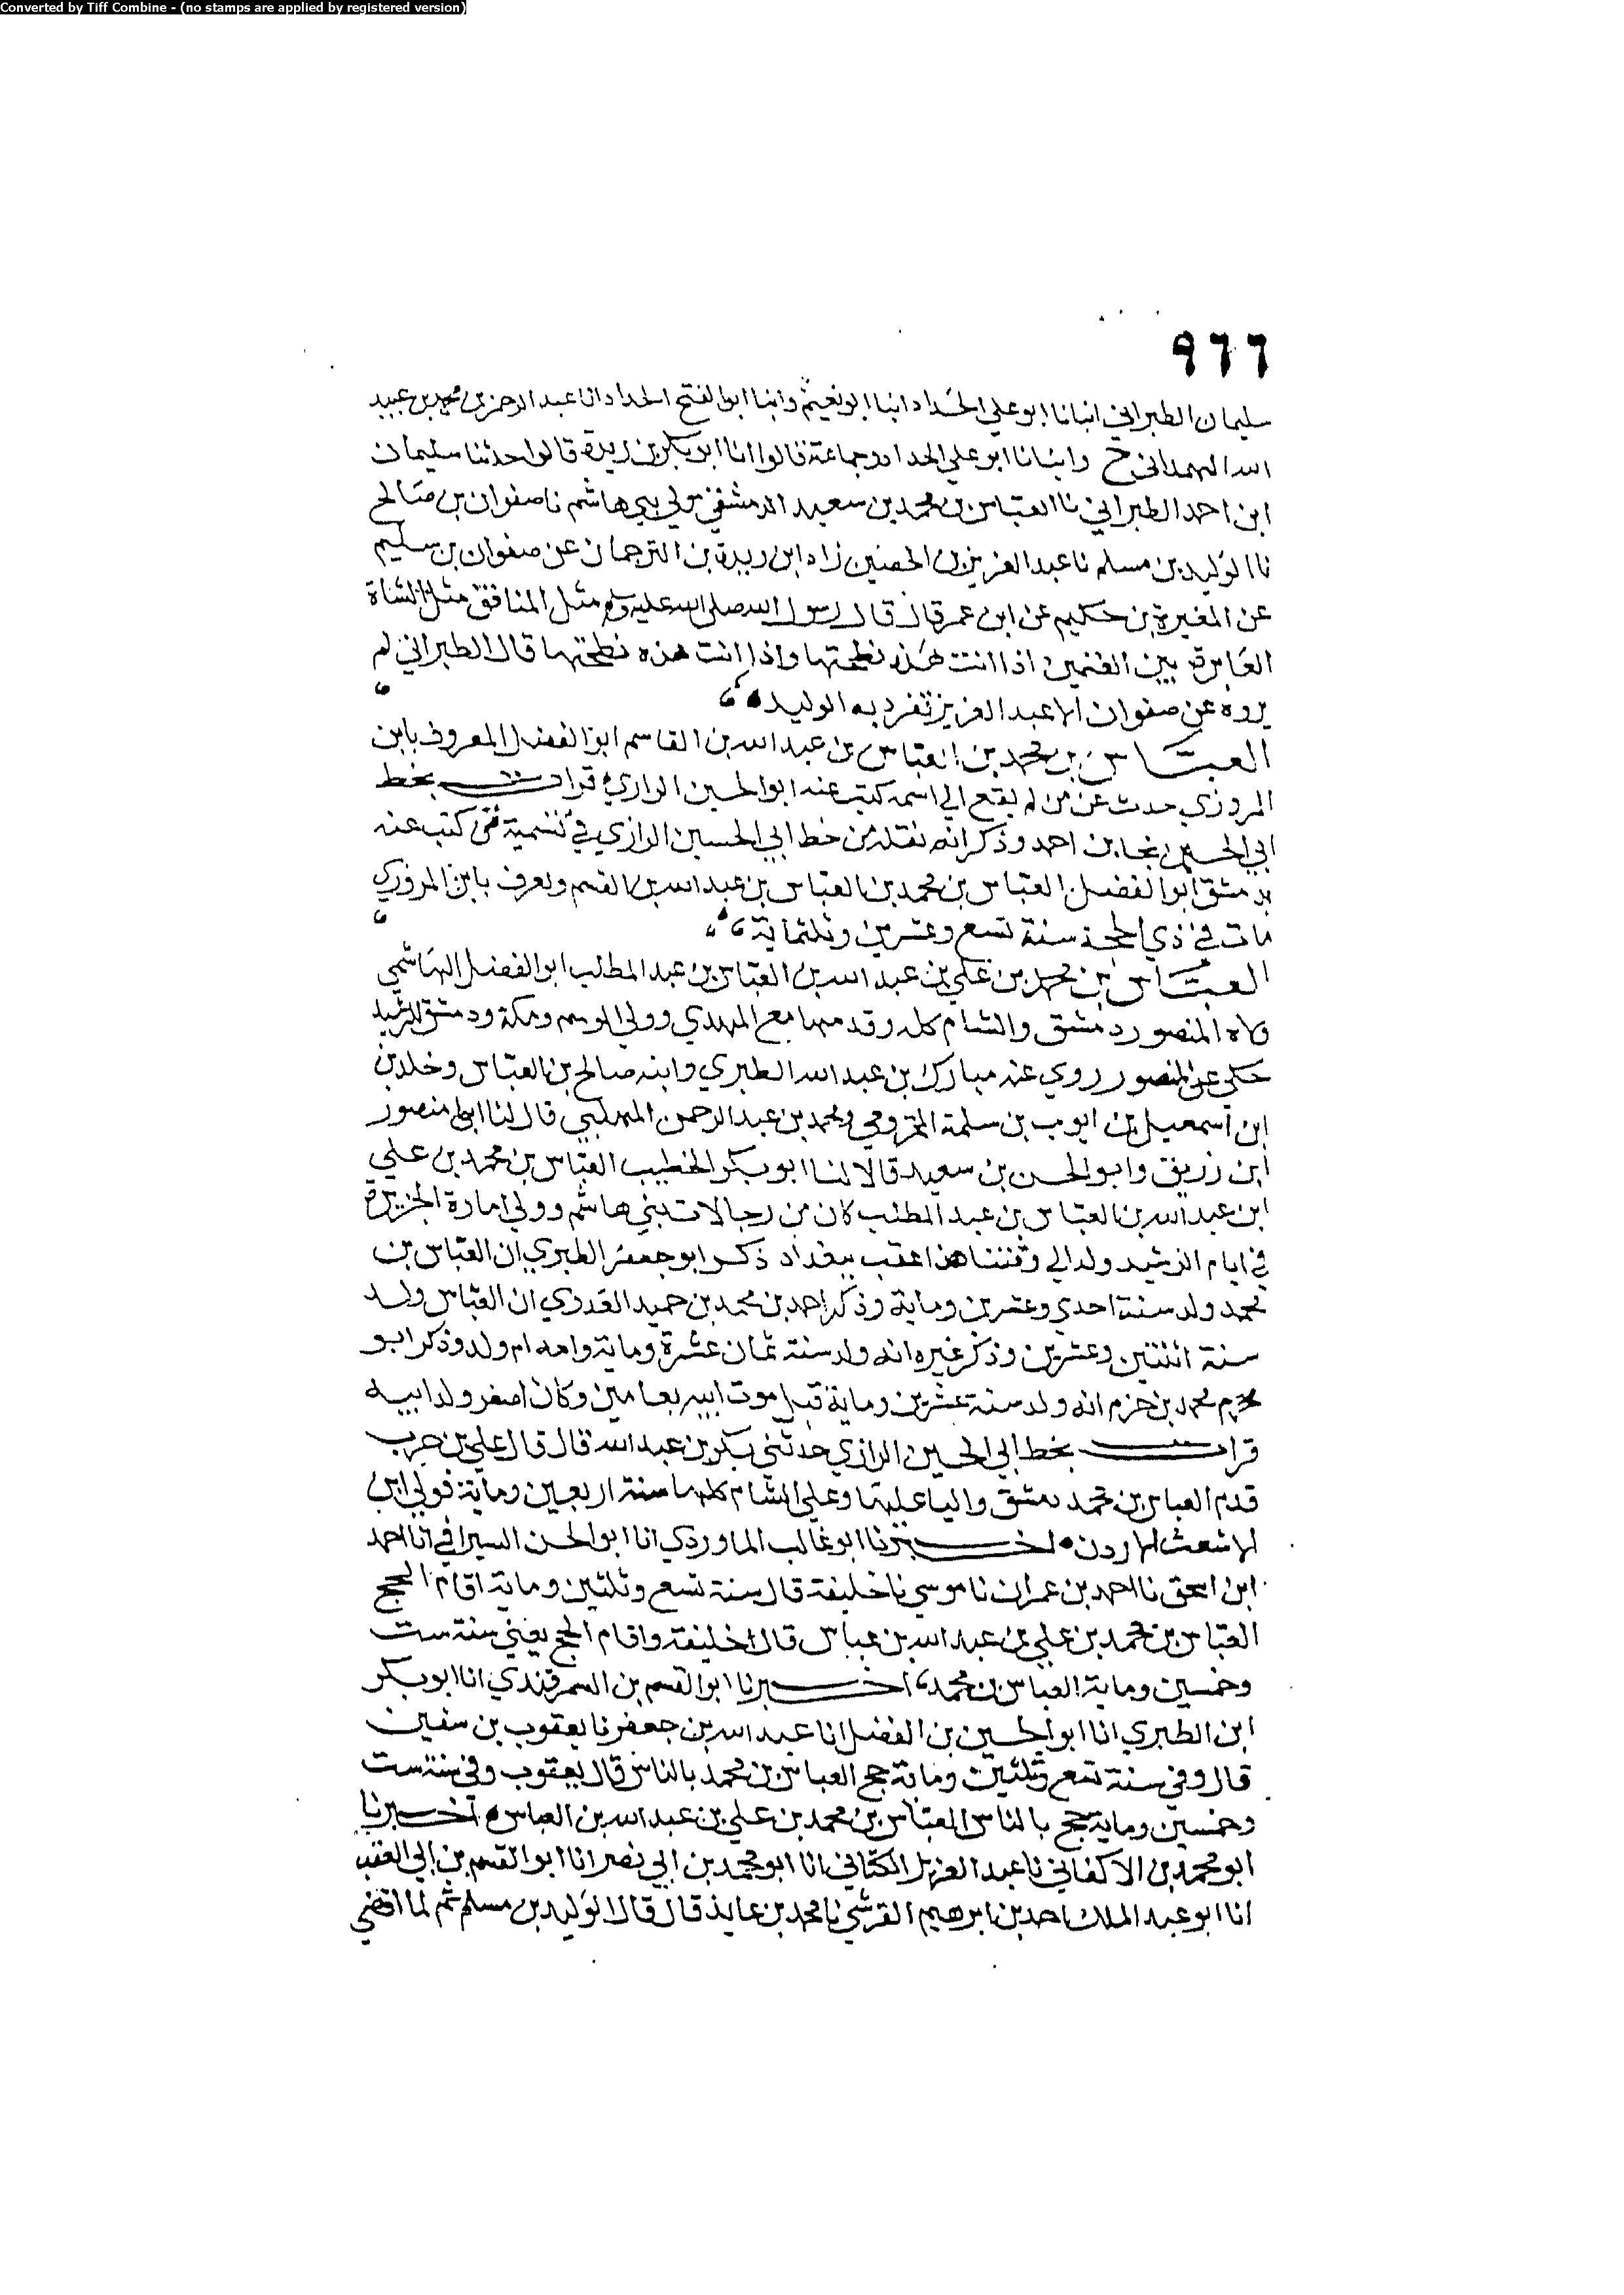 Converted by Tiff Combine - (no stamps are applied by registered version)
٩٦٦
سليمان الطبراني انبانا ابو علي الحداد انبا ابو نعيم وانبا ابو الفتح الحداد انا عبد الرحمن بن محمد بن عبيد
الله الهمداني ح وانبانا ابو علي الحداد وجماعة قالوا انا ابو بكر بن ريدة قالوا حدثنا سليمان
ابن احمد الطبراني نا العباس بن محمد بن سعيد الدمشقي مولي بني هاشم نا صفوان بن صالح
نا الوليد بن مسلم نا عبد العزيز بن الحصين زاد ابن ريدة بن الترجمان عن صفوان بن سليم
عن المغيرة بن حكيم عن ابن عمر قال قال رسول الله صلى الله عليه وسلم مثل المنافق مثل الشاة
العابرة بين الغنمين اذا اتت هذه نطحتها واذا اتت هذه نطحتها قال الطبراني لم
يروه عن صفوان الا عبد العزيز تفرد به الوليد
العباس بن محمد بن العباس بن عبد الله بن القاسم ابو الفضل المعروف بابن
المروزي حدث عن من لم يقع الي اسمه كتب عنه ابو الحسين الرازي قرات بخط
ابي الحسين نجا بن احمد وذكر انه نقله من خط ابي الحسين الرازي في تسمية من كتب عنه
بدمشق ابو الفضل العباس بن محمد بن العباس بن عبد الله بن القسم ويعرف بابن المروزي
مات في ذي الحجة سنة تسع وعشرين وثلثماية
العباس بن محمد بن علي بن عبد الله بن العباس بن عبد المطلب ابو الفضل الهاشمي
ولاه المنصور دمشق والشام كله وقدمها مع المهدي وولي الموسم ومكة ودمشق للرشيد
حكى عن المنصور روي عنه مبارك بن عبد الله الطبري وابنه صالح بن العباس وخلد بن
ابن اسمعيل بن ايوب بن سلمة المخزومي ومحمد بن عبد الرحمن المهلبي قال لنا ابو منصور
ابن زريق وابو الحسن بن سعيد قالا لنا ابو بكر الخطيب العباس بن محمد بن علي
ابن عبد الله بن العباس بن عبد المطلب كان من رجالات بني هاشم وولي امارة الجزيرة
في ايام الرشيد وله الي وقتنا هذا عقب ببغداد ذكر ابو جعفر الطبري ان العباس بن
محمد ولد سنة احدي وعشرين وماية وذكر احمد بن محمد بن حميد العدوي ان العباس ولد
سنة اثنتين وعشرين وذكر غيره انه ولد سنة ثمان عشرة وماية وامه ام ولد وذكر ابو
محمد بن حزم انه ولد سنة عشرين وماية قبل موت ابيه بعامين وكان اصغر ولد ابيه
قرات بخط ابي الحسين الرازي حدثني بكر بن عبد الله قال قال علي بن حرب
قدم العباس بن محمد دمشق واليا عليها وعلي الشام كلها سنة اربعين وماية فولي ابن
الاشعث الاردن اخبرنا ابو غالب الماوردي انا ابو الحسن السيرافي انا احمد
ابن اسحق نا احمد بن عمران نا موسي نا خليفة قال سنة تسع وثلثين وماية اقام الحج
العباس بن محمد بن علي بن عبد الله بن عباس قال خليفة واقام الحج يعني سنة ست
وخمسين وماية العباس بن محمد اخبرنا ابو القسم بن السمرقندي انا ابو بكر
ابن الطبري انا ابو الحسين بن الفضل انا عبد الله بن جعفر نا يعقوب بن سفين
قال وفي سنة تسع وثلثين وماية حج العباس بن محمد بالناس قال يعقوب وفي سنة ست
وخمسين وماية حج بالناس العباس بن محمد بن علي بن عبد الله بن العباس اخبرنا
ابو محمد بن الاكفاني نا عبد العزيز الكتاني انا ابو محمد بن ابي نصر انا ابو القسم بن ابي العقب
انا ابو عبد الملك احمد بن ابرهيم القرشي نا محمد بن عايذ قال قال الوليد بن مسلم ثم لما انقضي